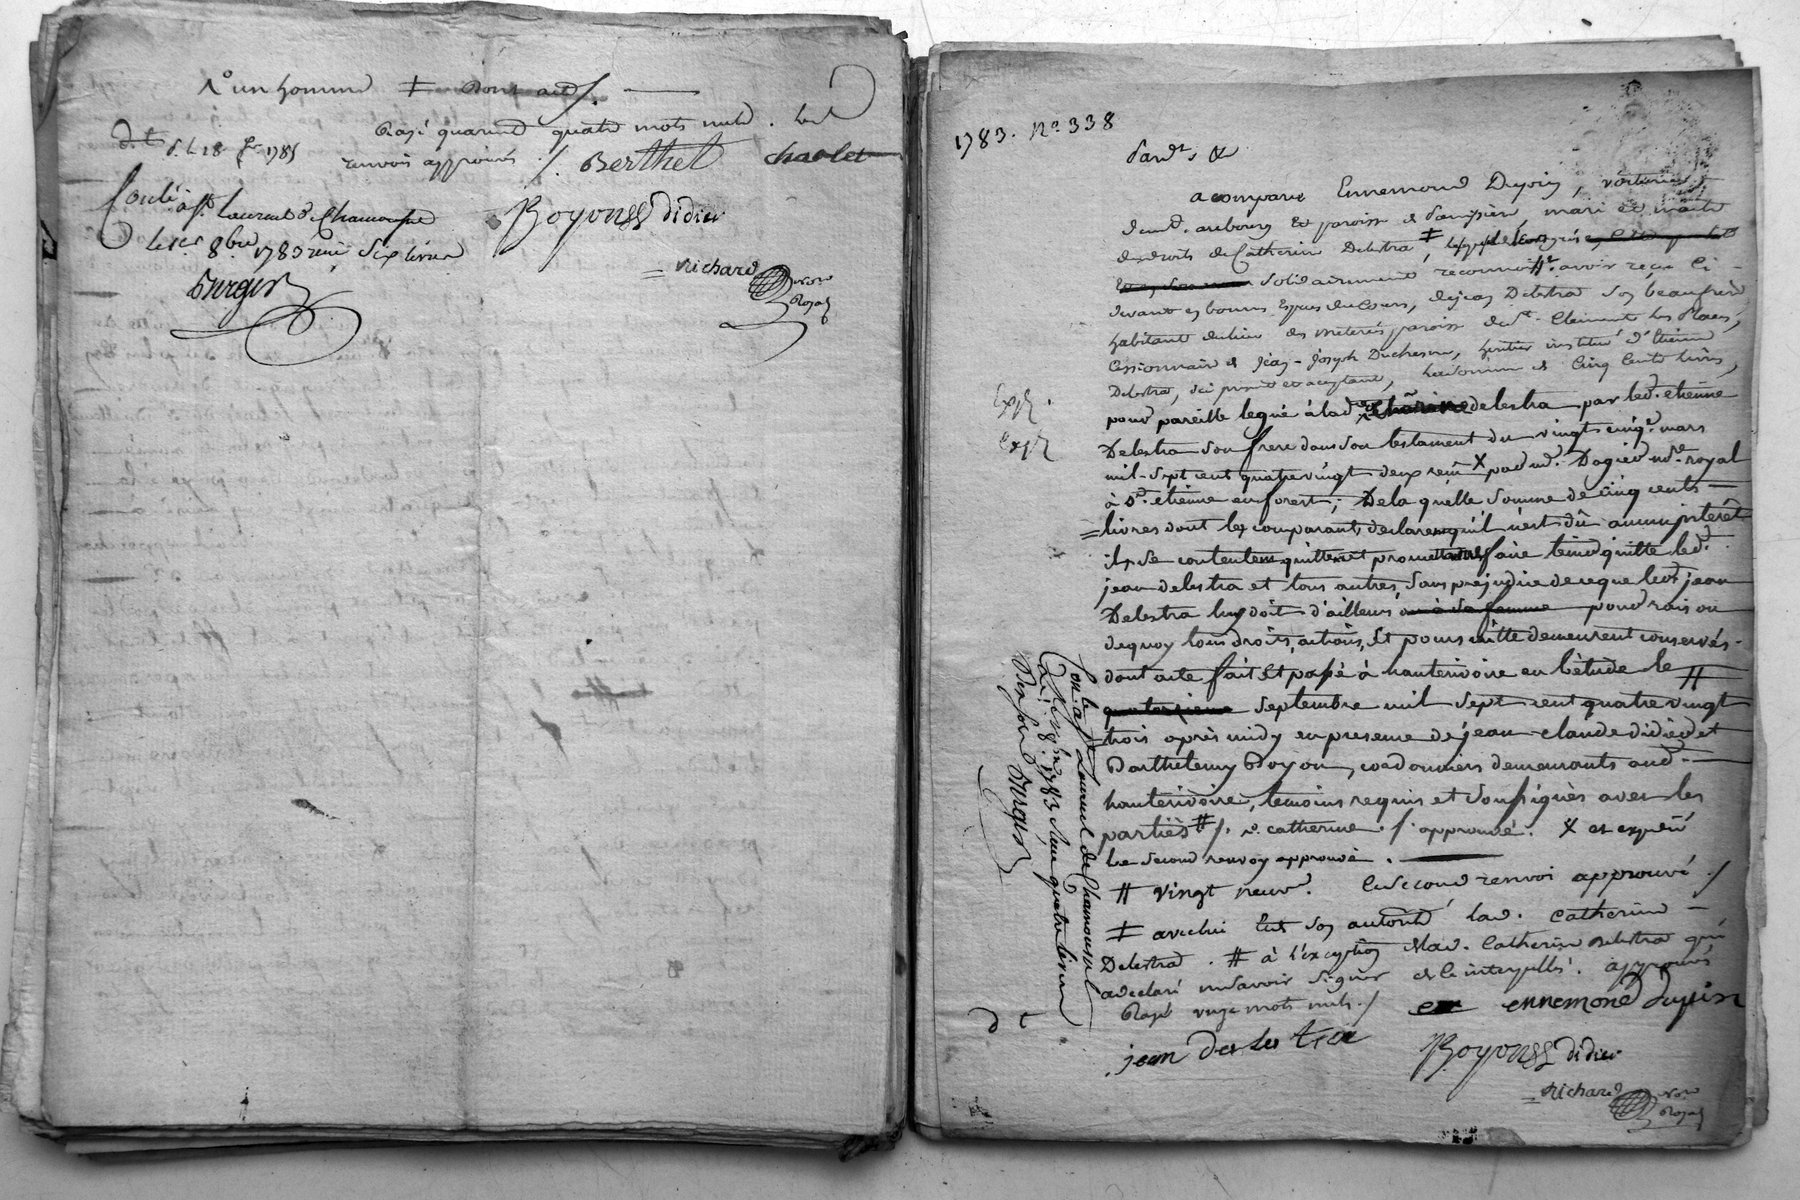 1° un homme ‡ dont acte /. —
Rayé quarante quatre mots nuls. les
renvois approuvés ./. Berthet chaolet
d. t. 1785
Controlé à St. Laurent de Chamousset
le 1er 8bre 1783 six livres
Burgin
Boyousse didier
= Richard Nore
Royal
1783. No. 338
Pardt. &
a comparu Ennemond Dupin, voiturier
demt. au bourg et paroisse de mari et maitre
des droits de Catherine Delestra, ‡
solidairement reconnoissent avoir reçu ci-
devant en bonnes Espèces du Cours, de jean Delestra son beaufrère
habitant du lieu des paroisse de St. Clément les Places,
Cessionnaire de Jean-Joseph Duchesne, héritier institué d'Etienne
Delestra, ici présent et acceptant, la somme de Cinq Cents livres,
Expé.
Expé
pour pareille legué à lad. delestra par led. etienne
Delestra son frere dans son testament du vingt cinqe. mars
mil-sept cent quatre vingt deux reçu X par me. Dagier nre. royal
à St. etienne en forest; De la quelle somme de Cinq cents
= livres dont les comparants declarent qu'il n'est dû aucun jnterêt
ils se contentent quittent et promettent faire tenir quitte led.
jean delestra et tous autres, Sans prejudice de ce que led. jean
Delestra luy doit d'ailleurs ou à sa femme pour raison
de quoy tous droits, actions, Et pours uitte demeurent conservés.
dont acte fait Et passé à hauterivoire en l'etude le #
quatorzieme septembre mil sept cent quatre vingt
trois après midy en presence de jean-claude didier et
Barthelemy Boyon, cordonniers demeurants aud.
hauterivoire, temoins requis et soussignés avec les
parties # /. catherine ./. approuvé. X et expédié
Le second renvoy approuvé. —
# vingt neuf. Le second renvoi approuvé ./
‡ avec lui Et de son autorité lad. Catherine —
Delestra. # à l'exception de lad. Catherine Delestra qui
a declaré ne savoir signer de ce interpellée. approuvés
Rayé mots nuls ./ ennemond dupin
jean deles tra
Boyousse didier
= Richard Nore
Royal
Con. à St. Laurent de Chamousset
le 8bre 1783 Reçu quatre livres
Burgin
d t